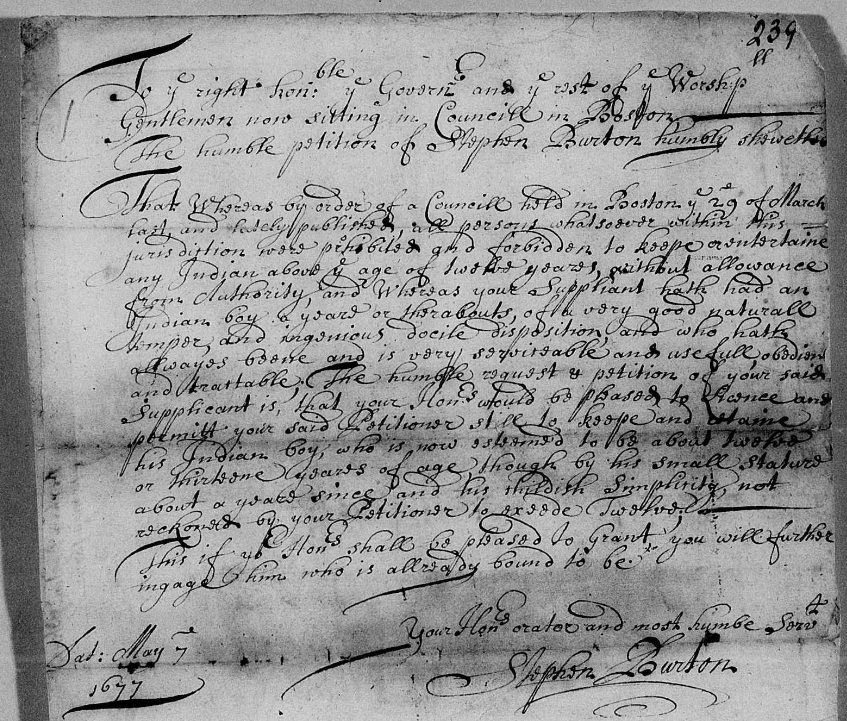 239
ll
To yᵉ right honᵇˡᵉ: yᵉ Governʳ and yᵉ rest of yᵉ Worship
Gentlemen now sitting in Councill in Boston
The humble petition of Stephen Burton humbly sheweth
That Whereas by order of a Councill held in Boston yᵉ 29 of March
last and lately published, all persons whatsoever within this
jurisdiction were prohibited and forbidden to keepe or entertaine
any Indian above yᵉ age of twelve yeares, without allowance
from Authority, and Whereas your Suppliant hath had an
Indian boy a yeare or therabouts, of a very good naturall
temper, and ingenious docile disposition, and who hath
allwayes beene and is very serviceable and usefull obedien
and tractable. The humble request & petition of your said
Supplicant is, that your Honʳˢ would be pleased to licence and
permitt your said Petitioner still to keepe and retaine
his Indian boy, who is now esteemed to be about twelve
or thirteene yeares of age though by his small stature
about a yeare since and his childish simplicity, not
reckoned by your Petitioner to exeede Twelve.
This if yoʳ Honʳˢ shall be pleased to Grant, you will further
ingage him who is allready bound to be.
Your Honʳˢ orator and most humbe Servᵗ
Stephen Burton
Dat: May 7
1677